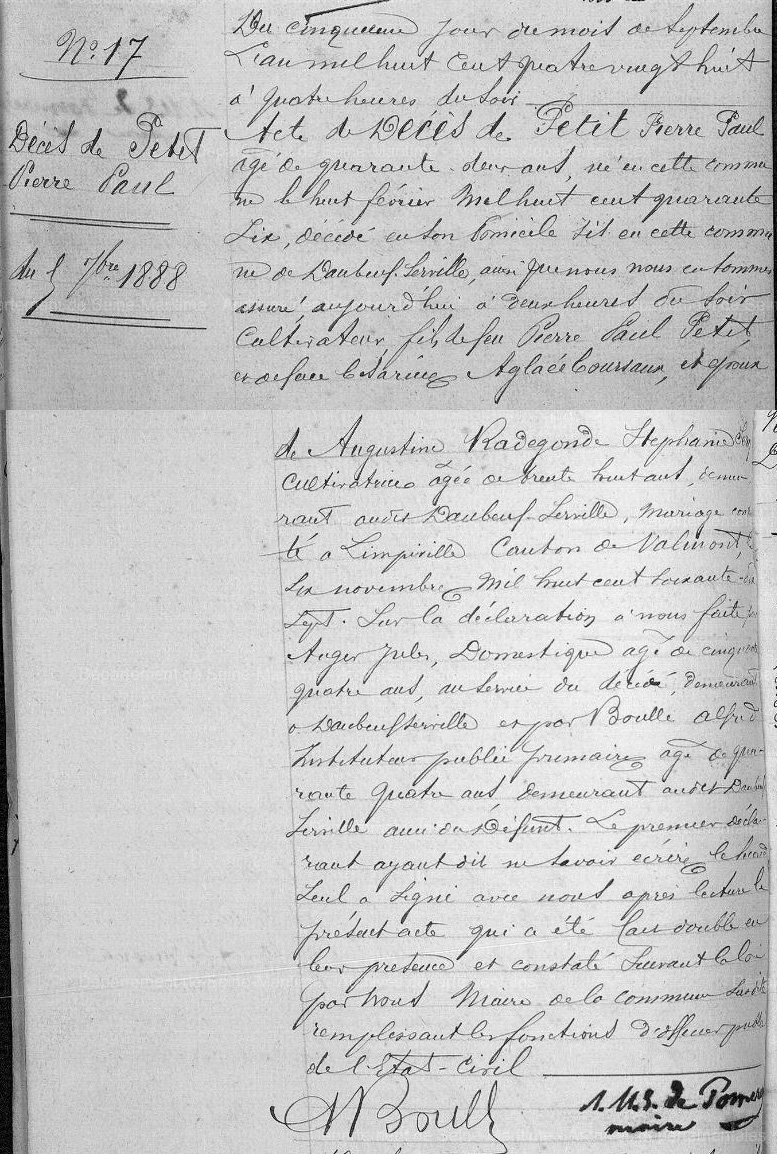 N° 17
Décès de Petit
Pierre Paul
du 5 7bre 1888
Du cinquieme jour du mois de Septembre
L'an mil huit Cent quatre vingt huit
à quatre heures du soir
Acte de Décès de Petit Pierre Paul
âgé de quarante deux ans, né en cette commu
ne le huit février Mil huit cent quarante
Six, décédé en son Domicile sis en cette commu
ne de Daubeuf-Serville, ainsi que nous nous en sommes
assuré, aujourd'hui à deux heures du Soir
Cultivateur, fils de feu Pierre Paul Petit
et de feue Césarine Aglaé Coursaux, et époux
de Augustine Radegonde Stephanie
Cultivatrice âgée de trente huit ans, demeu
rant audit Daubeuf-Serville, Mariage con
té a Limpiville Canton de Valmont, le
Six novembre Mil huit cent soixante-dix
Sept. Sur la déclaration à nous faite par
Auger Jules, Domestique âgé de cinquante
quatre ans, au Service du décédé, demeurant
a Daubeuf Serville et par Boulle Alfred
Instituteur public primaire âgé de qua
rante quatre ans demeurant audit Daubeuf
Serville ami du Défunt. Le premier décla
rant ayant dit ne Savoir écrire le second
Seul a Signé avec nous après lecture le
présent acte qui a été fait double en
leur presence et constaté Suivant la loi
par Nous Maire de la commune Susdite
remplissant les fonctions D'officier public
de l'Etat-Civil
A Boulle
maire